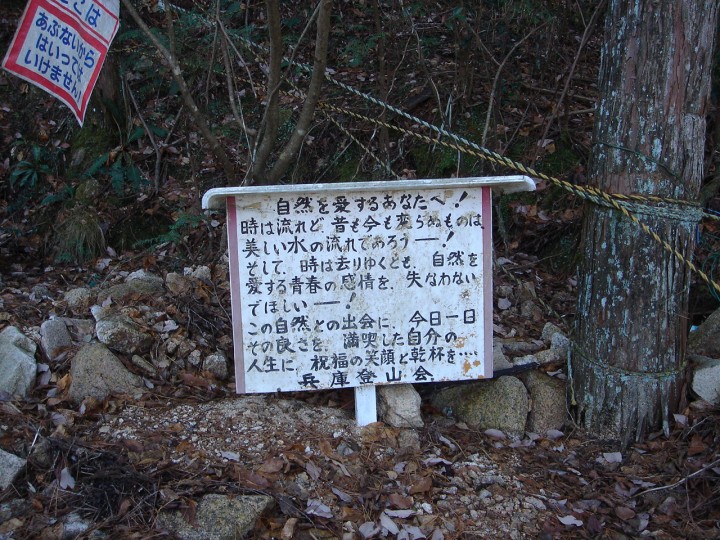 あぶないから
はいっては
いけません
自然を愛するあなたへ!
時は流れど 昔も今も変らぬものは、
美しい水の流れであろう――!
そして、時は去りゆくとも、自然を
愛する青春の感情を、失なわない
でほしい――!
この自然との出会に、今日一日
その良さを、満喫した自分の
人生に、祝福の笑顔と乾杯を…
兵庫登山会